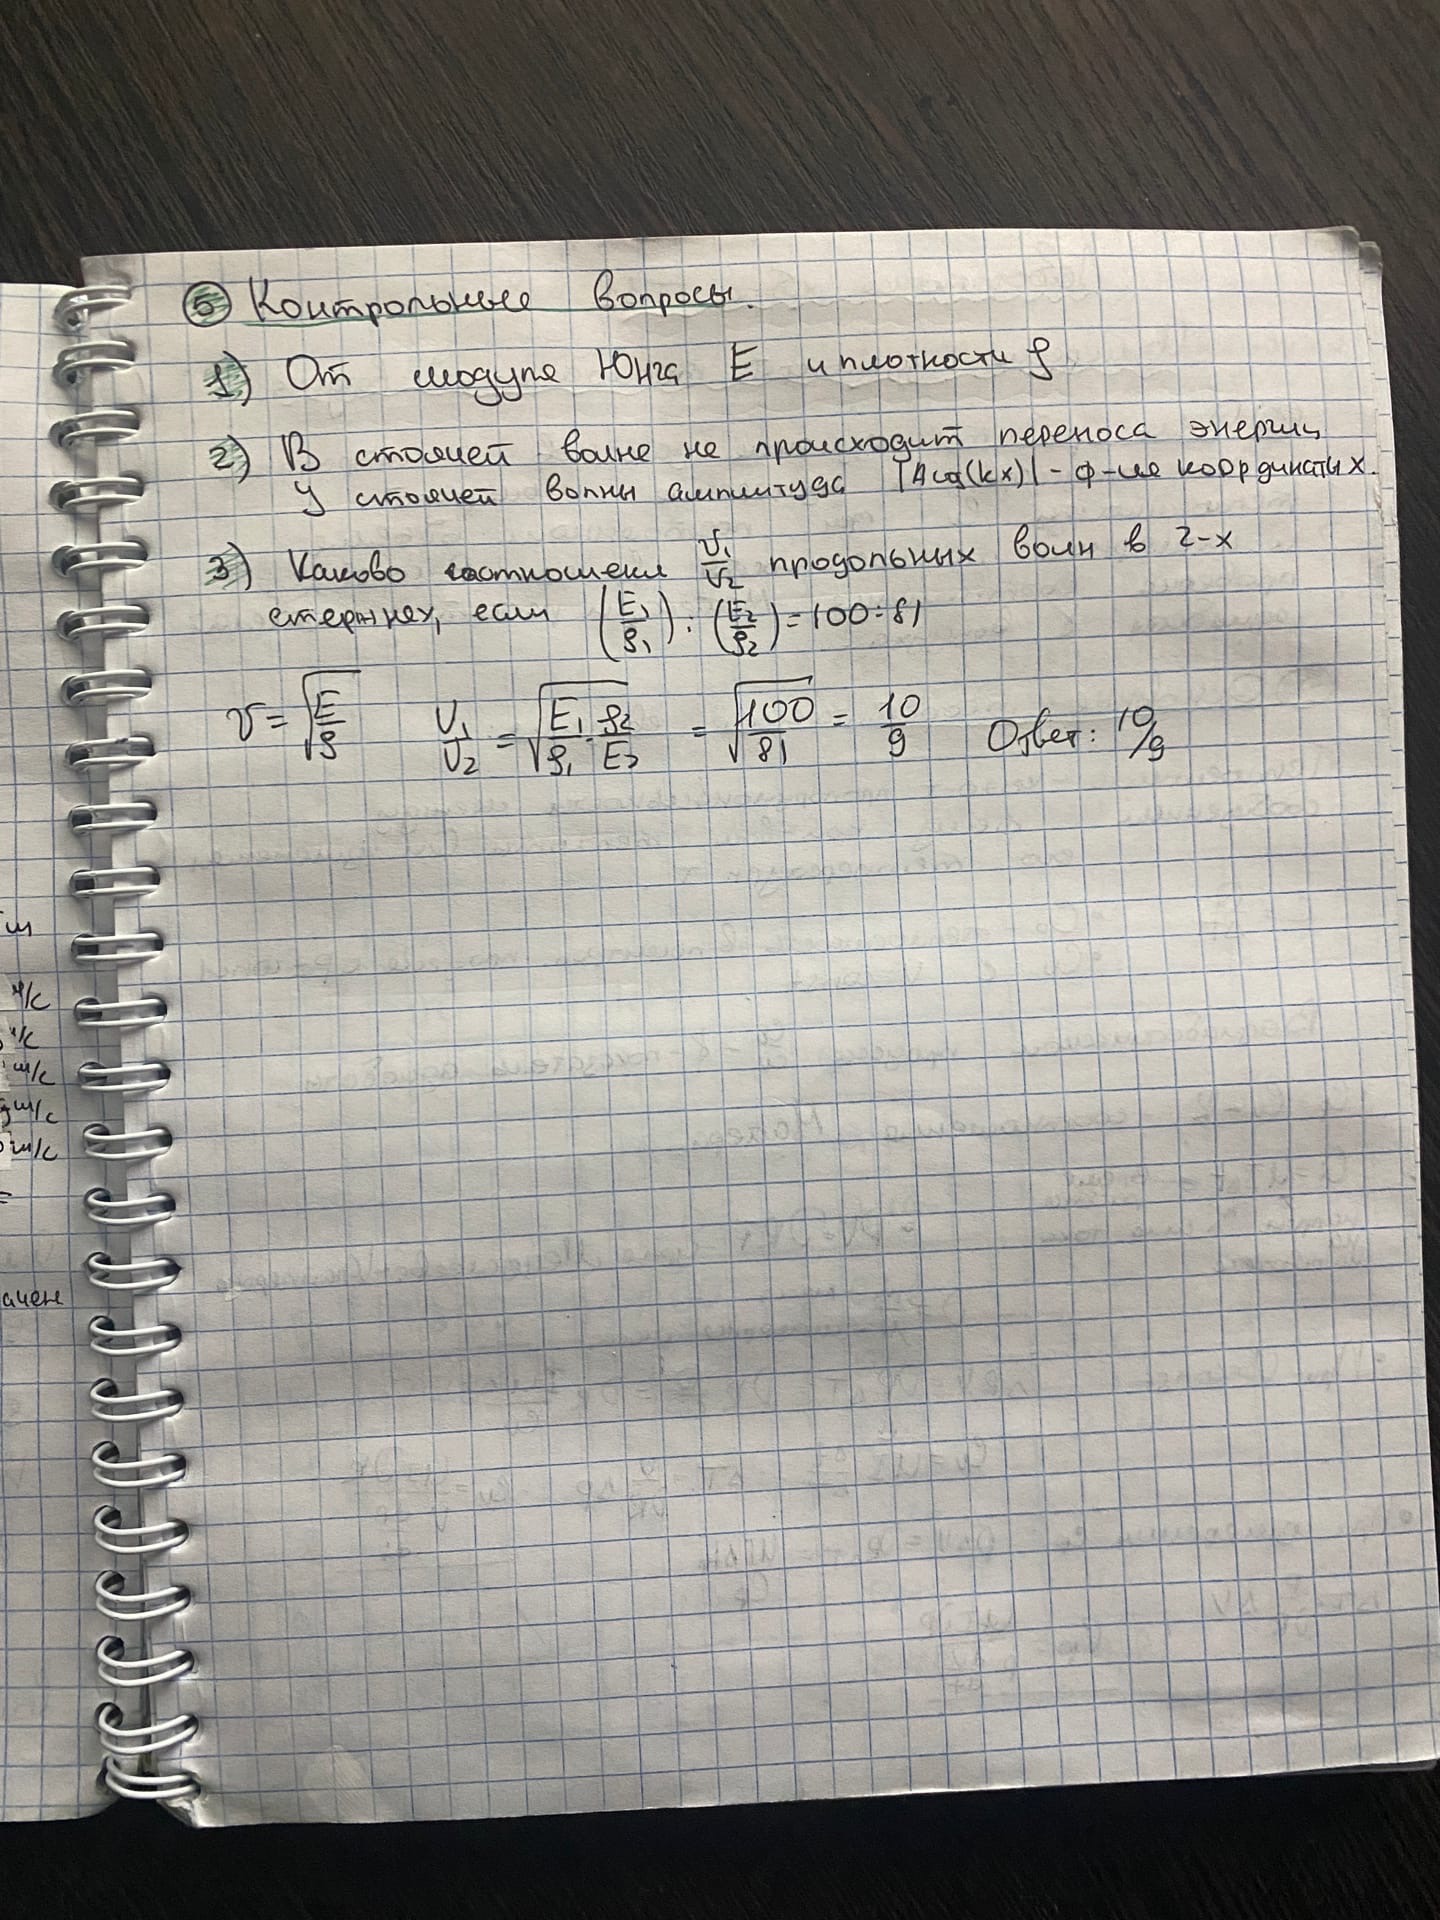 5 Контрольные вопросы.
1) От модуля Юнга E и плотности ρ
2) В стоячей волне не происходит переноса энергии
У стоячей волны амплитуда |A cos(kx)| - ф-ие координаты x.
3) Каково соотношение v₁/v₂ продольных волн в 2-х
стержнях, если (E₁/ρ₁) : (E₂/ρ₂) = 100 : 81
v = √(E/ρ) v₁/v₂ = √(E₁/ρ₁ · ρ₂/E₂) = √(100/81) = 10/9 Ответ: 10/9
м/с
м/с
м/с
м/с
м/с
=